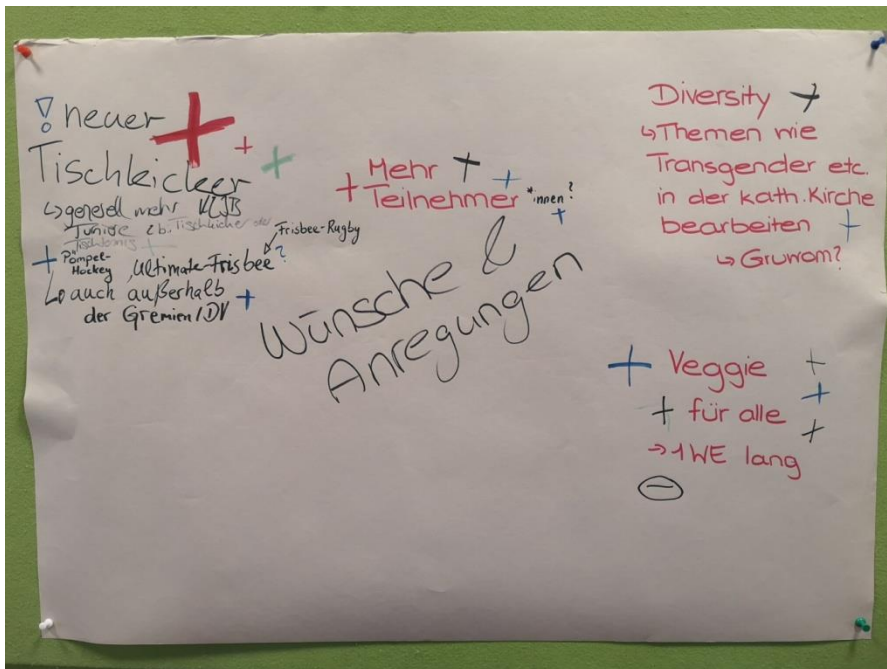 ! neuer +
Tischkicker + +
↳ generell mehr KLJB
Tunire z.b. Tischkicker oder
Tischtennis +
+ Pömpel-
Hockey, Ultimate-Frisbee?
Frisbee-Rugby
↳ auch außerhalb +
der Gremien/DV
Mehr +
+ Teilnehmer *innen? +
+
Wünsche &
Anregungen
Diversity +
↳ Themen wie
Transgender etc.
in der kath. Kirche
bearbeiten +
↳ Gruwom?
+ Veggie +
+ für alle +
→ 1 WE lang +
⊖